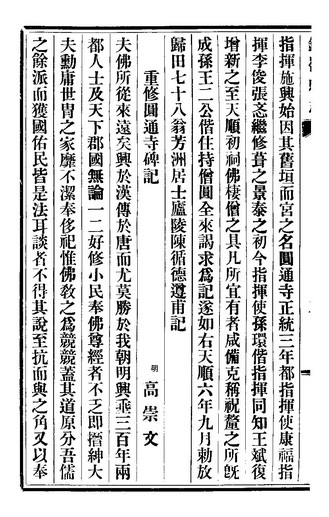 指揮施興始因其舊垣而宮之名圓通寺正統三年都指揮使康福指
揮李俊張忞繼修葺之景泰之初今指揮使孫環偕指揮同知王斌復
增新之至天順初祠佛棲僧之具凡所宜有者咸備克稱祝釐之所旣
成孫王二公偕住持僧圓全來謁求爲記遂如右天順六年九月勅放
歸田七十八翁芳洲居士廬陵陳循德遵甫記
重修圓通寺碑記
明 高崇文
夫佛所從來遠矣興於漢傳於唐而尤莫勝於我朝明興乘三百年兩
都人士及天下郡國無論一二好修小民奉佛尊經者不乏即搢紳大
夫勳庸世胄之家靡不潔奉侈祀惟佛敎之爲競競蓋其道原分吾儒
之餘派而獲國佑民皆是法耳談者不得其說至抗而與之角又以奉